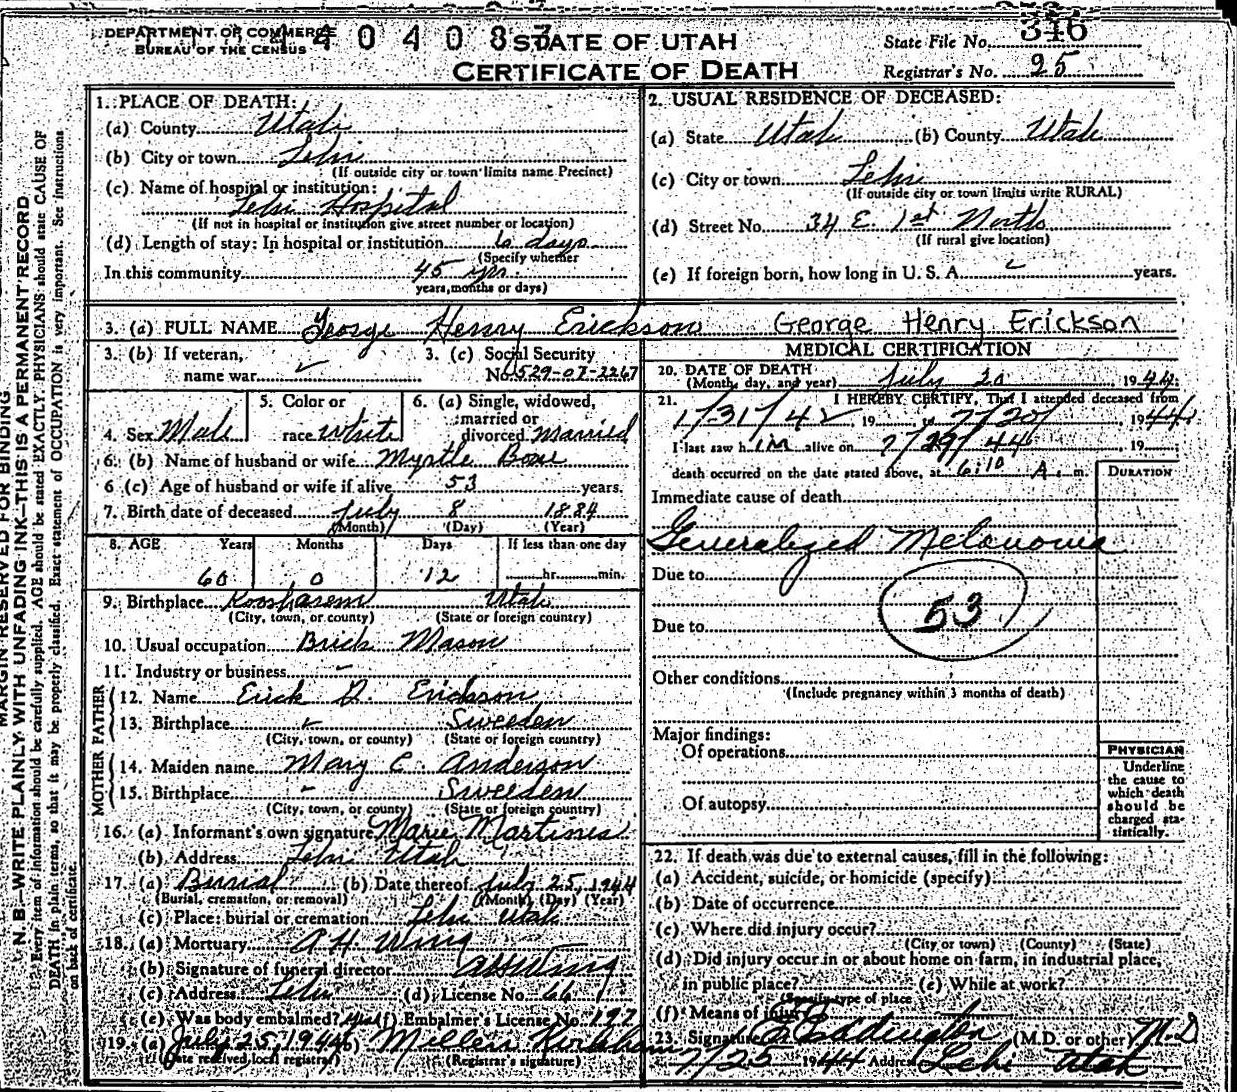 DEPARTMENT OF COMMERCE
BUREAU OF THE CENSUS
STATE OF UTAH
CERTIFICATE OF DEATH
State File No. 346
Registrar's No. 25
MARGIN RESERVED FOR BINDING
N. B.—WRITE PLAINLY WITH UNFADING INK—THIS IS A PERMANENT RECORD.
Every item of information should be carefully supplied. AGE should be stated EXACTLY. PHYSICIANS should state CAUSE OF
DEATH in plain terms, so that it may be properly classified. Exact statement of OCCUPATION is very important. See instructions
on back of certificate.
1. PLACE OF DEATH:
(a) County Utah
(b) City or town Lehi
(If outside city or town limits name Precinct)
(c) Name of hospital or institution:
Lehi Hospital
(If not in hospital or institution give street number or location)
(d) Length of stay: In hospital or institution 6 days
(Specify whether
In this community 45 yrs.
years, months or days)
2. USUAL RESIDENCE OF DECEASED:
(a) State Utah (b) County Utah
(c) City or town Lehi
(If outside city or town limits write RURAL)
(d) Street No. 34 E. 1st North
(If rural give location)
(e) If foreign born, how long in U. S. A. years.
3. (a) FULL NAME George Henry Erickson George Henry Erickson
3. (b) If veteran,
name war
3. (c) Social Security
No. 529-07-2267
4. Sex Male
5. Color or
race White
6. (a) Single, widowed,
married or
divorced Married
6. (b) Name of husband or wife Myrtle Bone
6 (c) Age of husband or wife if alive 53 years.
7. Birth date of deceased July 8 1884
(Month) (Day) (Year)
8. AGE Years Months Days If less than one day
60 0 12 hr. min.
9. Birthplace Koosharem Utah
(City, town, or county) (State or foreign country)
10. Usual occupation Brick Mason
11. Industry or business -
FATHER
12. Name Erick D. Erickson
13. Birthplace Sweeden
(City, town, or county) (State or foreign country)
MOTHER
14. Maiden name Mary C. Anderson
15. Birthplace - Sweeden
(City, town, or county) (State or foreign country)
16. (a) Informant's own signature Marie
(b) Address Lehi Utah
17. (a) Burial (b) Date thereof July 25, 1944
(Burial, cremation, or removal) (Month) (Day) (Year)
(c) Place: burial or cremation Lehi Utah
18. (a) Mortuary A. H. Wing
(b) Signature of funeral director A H Wing
(c) Address Lehi (d) License No. 66
(e) Was body embalmed? yes (f) Embalmer's License No. 197
19. (a) July 25, 1944 (b)
(Date received local registrar) (Registrar's signature)
MEDICAL CERTIFICATION
20. DATE OF DEATH
(Month, day, and year) July 20 1944.
21. I HEREBY CERTIFY, That I attended deceased from
1/31/42, 19 to 7/20/, 1944
I last saw him alive on 7/ /44, 19
death occurred on the date stated above, at 6:10 A. m.
DURATION
Immediate cause of death
Generalized Melonoma
Due to
53
Due to
Other conditions
(Include pregnancy within 3 months of death)
Major findings:
Of operations
Of autopsy
PHYSICIAN
Underline
the cause to
which death
should be
charged sta-
tistically.
22. If death was due to external causes, fill in the following:
(a) Accident, suicide, or homicide (specify)
(b) Date of occurrence
(c) Where did injury occur?
(City or town) (County) (State)
(d) Did injury occur in or about home on farm, in industrial place,
in public place? (e) While at work?
(Specify type of place
(f) Means of injury
23. Signature Eddington (M.D. or other) M.D
7/25 1944 Address Lehi Utah